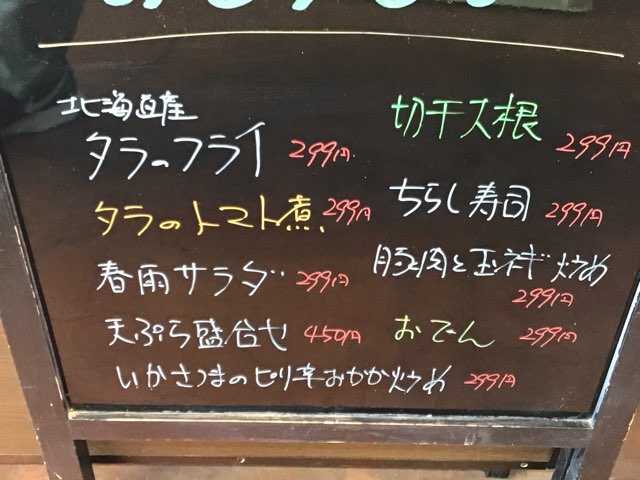 北海道産
タラのフライ 299円
タラのトマト煮 299円
春雨サラダ 299円
天ぷら盛合せ 450円
切干大根 299円
ちらし寿司 299円
豚肉と玉ネギ炒め
299円
おでん 299円
いかさつまのピリ辛おかか炒め 299円